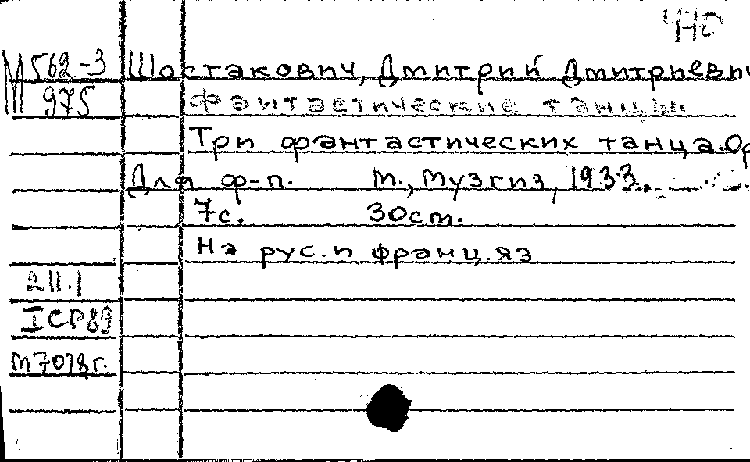 но
М562-3 Шостакович, Дмитрий Дмитриевич
975 Фантастические танцы
Три фантастических танца. Ор
Для ф-п. м., музгиз, 1933.
7с. 30см.
На рус. и франц. яз
211.1
ICP89
м7078г.